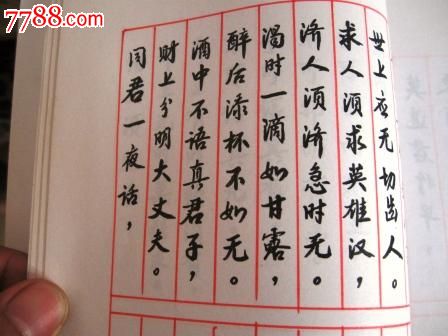 7788.com
世上应无切齿人。
求人须求英雄汉，
济人须济急时无。
渴时一滴如甘露，
醉后添杯不如无。
酒中不语真君子，
财上分明大丈夫。
同君一夜话，
7788.com